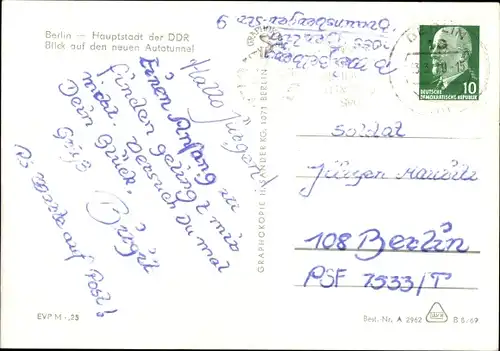 Berlin — Hauptstadt der DDR
Blick auf den neuen Autotunnel
Hallo Jürgen!
Einen Anfang zu
finden gelingt mir
nicht. Versuch Du mal
Dein Glück.
Gruß Birgit
warte auf Post!
EVP M -,25
GRAPHOKOPIE H. SANDER KG, 1071 BERLIN
BERLIN
10
DEUTSCHE
DEMOKRATISCHE REPUBLIK
Soldat
Jürgen
108 Berlin
PSF 7533/T
Best.-Nr. A 2962
B 8/69